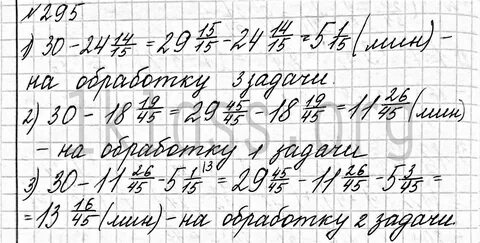 №295
1) 30 - 24 14/15 = 29 15/15 - 24 14/15 = 5 1/15 (мин) -
на обработку 3 задачи
2) 30 - 18 19/45 = 29 45/45 - 18 19/45 = 11 26/45 (мин)
- на обработку 1 задачи
3) 30 - 11 26/45 - 5 1/15 \3 = 29 45/45 - 11 26/45 - 5 3/45 =
= 13 16/45 (мин) - на обработку 2 задачи.